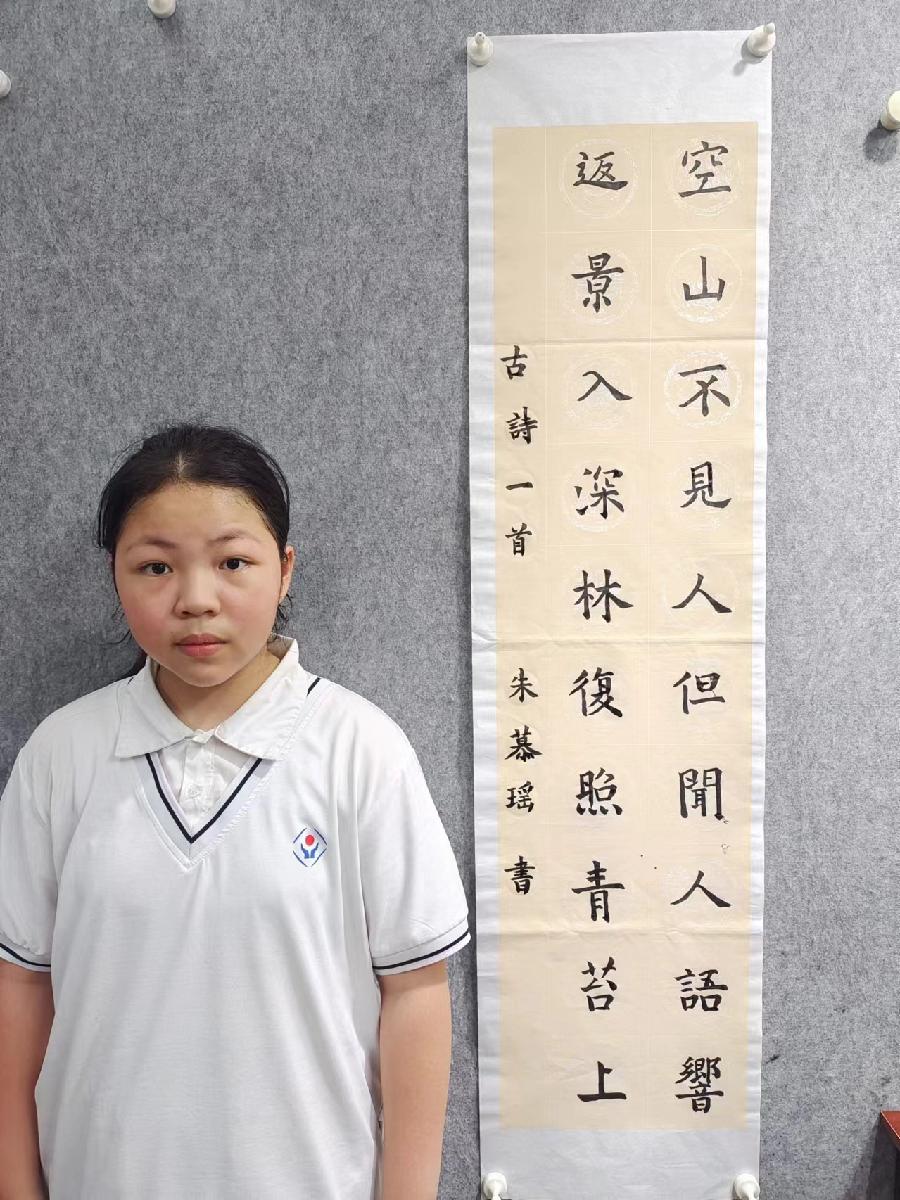 空山不見人但聞人語響
返景入深林復照青苔上
古詩一首 朱慕瑶 書